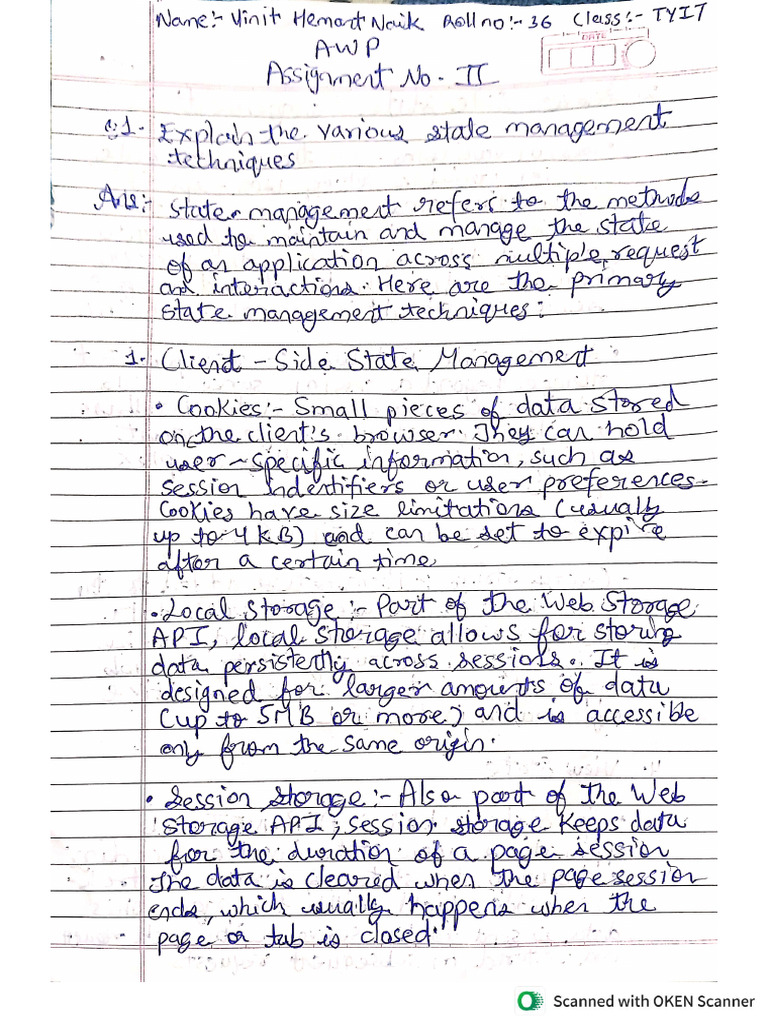 Name:- Vinit Hemant Naik Roll no:- 36 Class:- TYIT
AWP
DATE
Assignment No - II
Q1. Explain the various state management
techniques
Ans:- State management refers to the methods
used to maintain and manage the state
of an application across multiple request
and interactions. Here are the primary
state management techniques:
1. Client - Side State Management
• Cookies:- Small pieces of data stored
on the client's browser. They can hold
user-specific information, such as
session indentifiers or user preferences.
Cookies have size limitations (usually
up to 4 KB) and can be set to expire
after a certain time.
• Local Storage :- Part of the Web Storage
API, local storage allows for storing
data persistently across sessions. It is
designed for larger amounts of data
(up to 5MB or more) and is accessible
only from the same origin.
• Session Storage:- Also part of the Web
Storage API, session storage keeps data
for the duration of a page session
The data is cleared when the page session
ends, which usually happens when the
page or tab is closed.
Scanned with OKEN Scanner